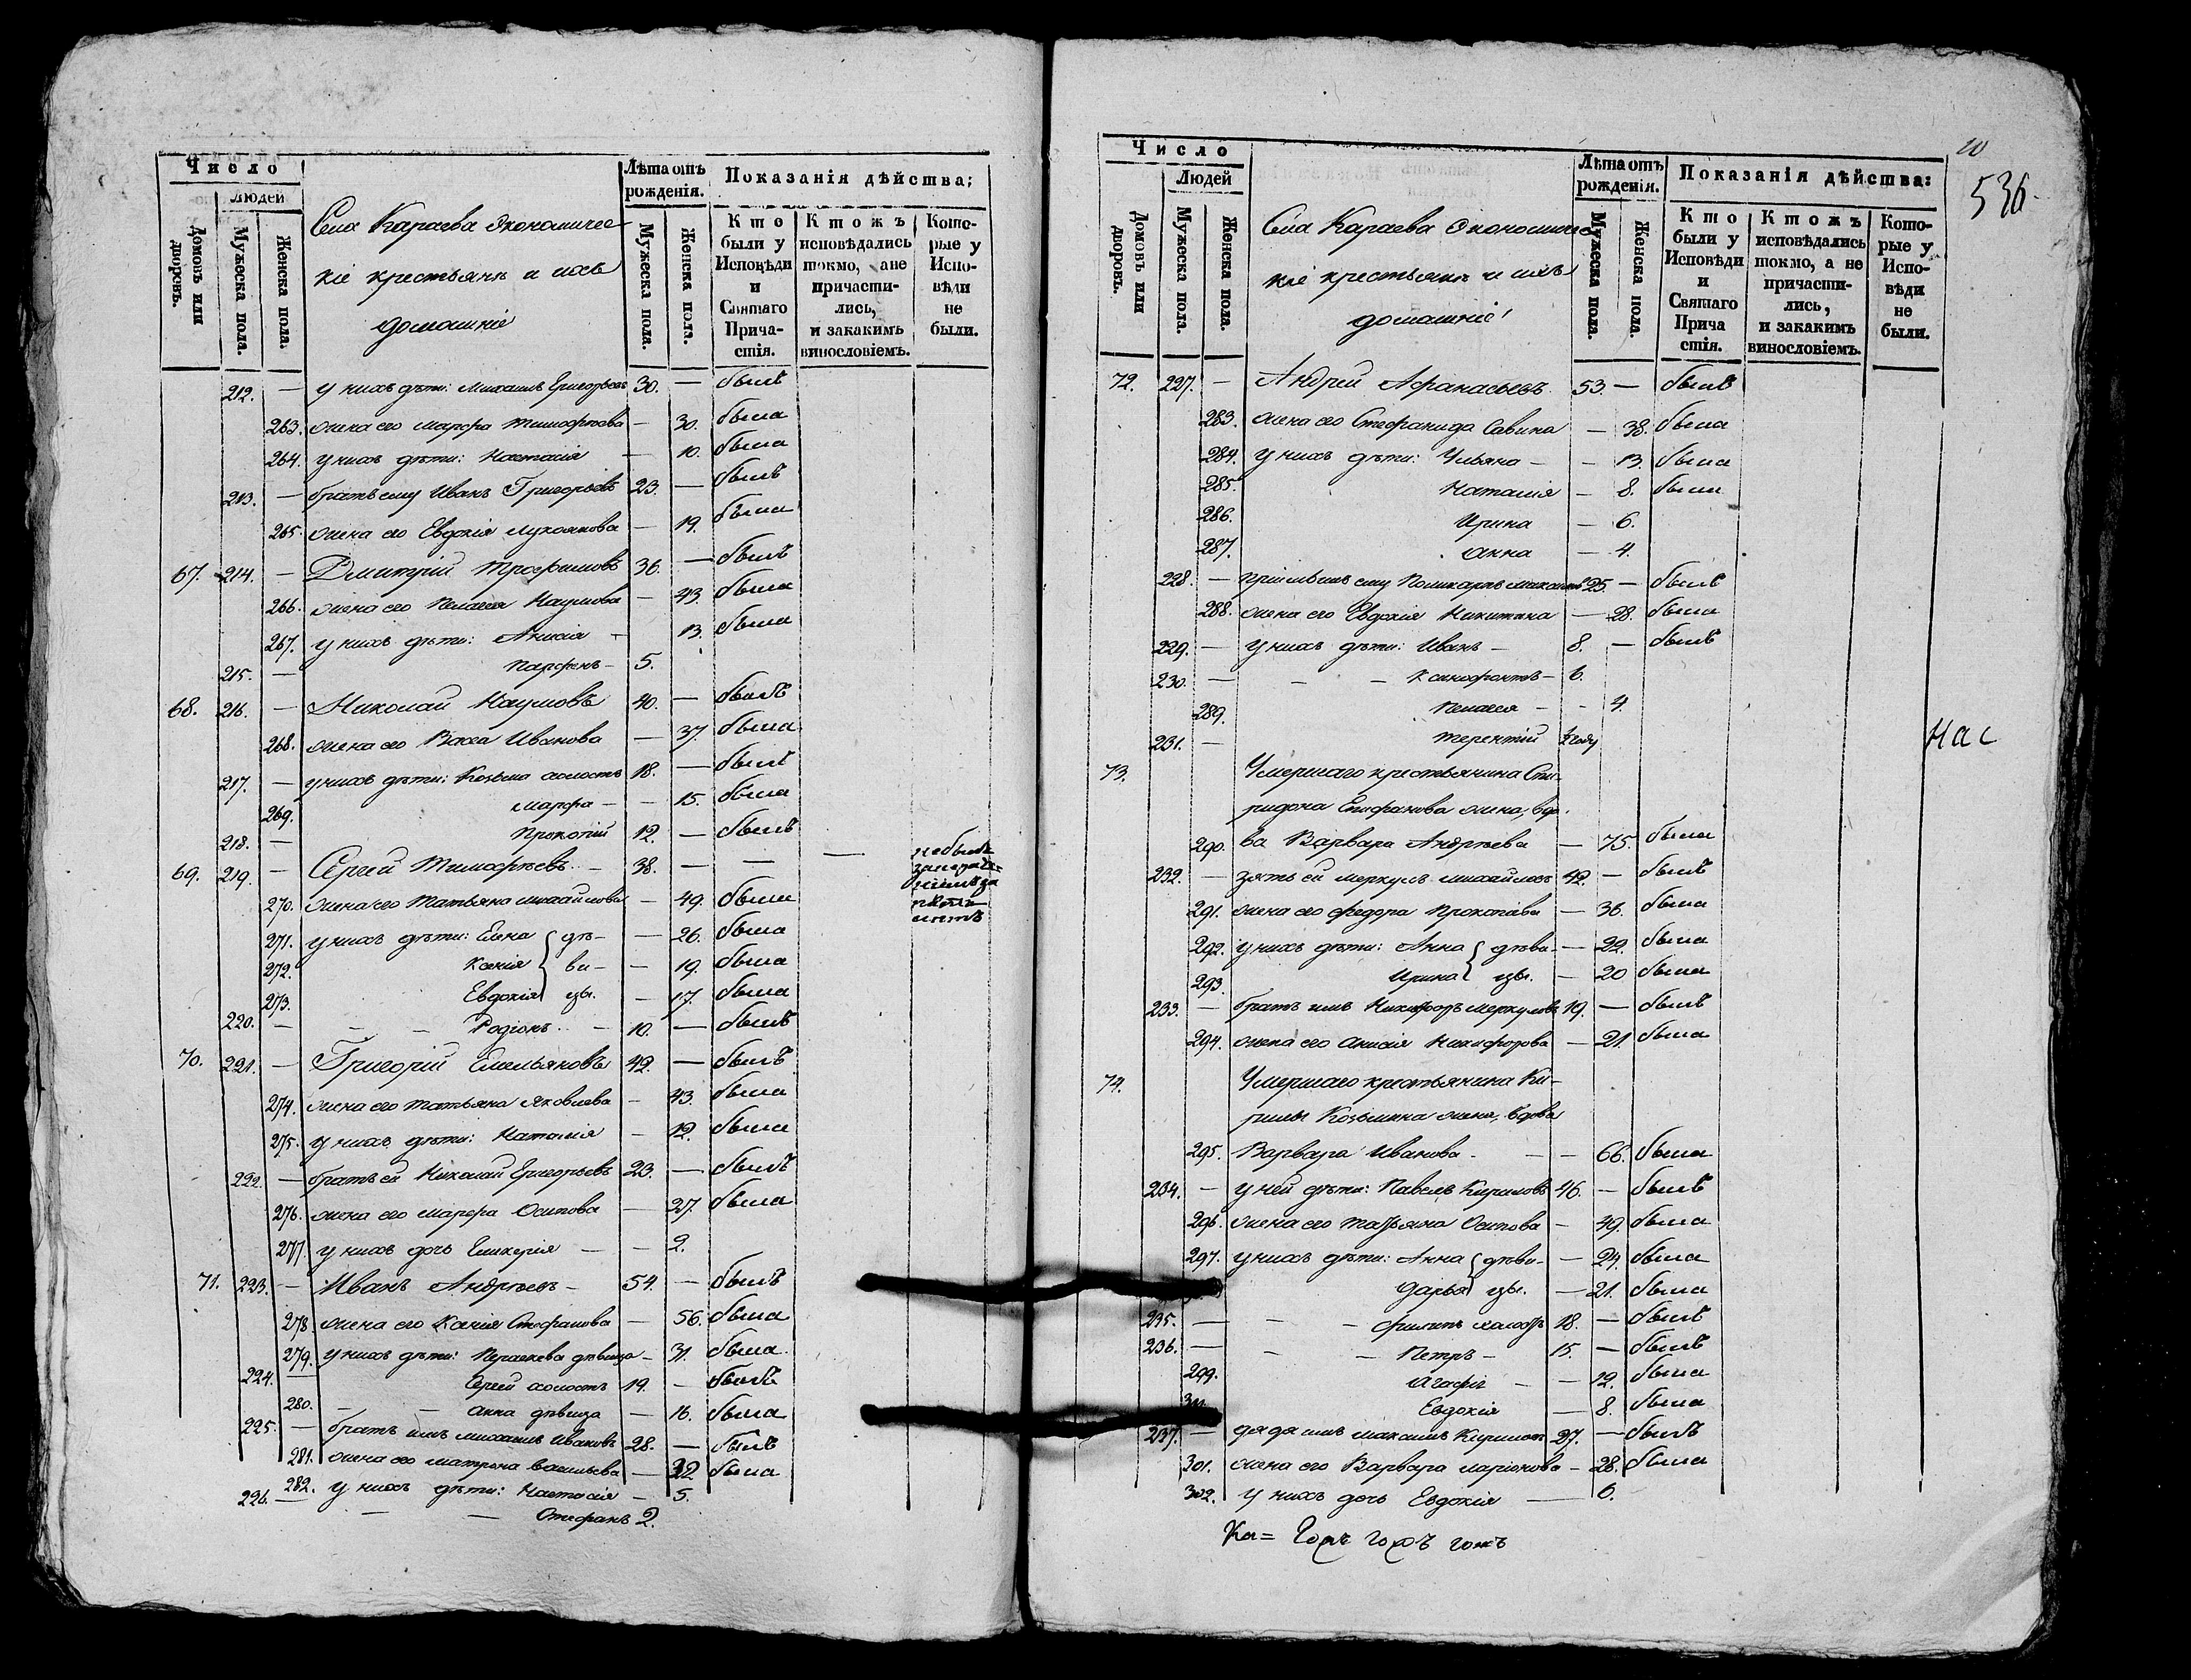 Число
Людей
Домовъ или дворовъ.
Мужеска пола.
Женска пола.
Села Караева Экономичес
кіе крестьянъ и ихъ
домашніе
Лѣта отъ рожденія.
Мужеска пола.
Женска пола.
Показанія дѣйства;
Кто были у Исповѣди и Святаго Прича-стія.
Ктожъ исповѣдались токмо, а не причасти-лись, и закакимъ винословіемъ.
Кото-рые у Испо-вѣди не были.
212. — у нихъ дѣти: Михаилъ Григорьевъ 30. — былъ
263. жена его Марфа Тимофѣева — 30. была
264. у нихъ дѣти: Настасія — 10. была
213. — братъ ему Иванъ Григорьевъ 23. — былъ
265. жена его Евдокія — 19. была
67. 214. — Дмитрій Трофимовъ 36. — былъ
266. жена его Пелагея Наумова — 43. была
267. у нихъ дѣти: Анисія — 13. была
215. — Парфенъ — 5.
68. 216. — Николай Наумовъ 40. — былъ
268. жена его Васса Иванова — 37. была
217. — у нихъ дѣти: Козьма холостъ 18. — былъ
269. Марфа — — 15. была
218. — Прокопій 12. — былъ
69. 219. — Сергей Тимофѣевъ — 38. — — — не былъ
270. жена его Татьяна Михайлова — 49. была
271. у нихъ дѣти: Елена { дѣ- — 26. была
272. Ксенія { ви- — 19. была
273. Евдокія { цы. — 17. была
220. — — — Родіонъ — 10. — былъ
70. 221. — Григорій Емельяновъ 42. — былъ
274. жена его Татьяна Яковлева — 43. была
275. у нихъ дѣти: Наталія — 12. была
222. — братъ ей Николай Григорьевъ 23. — былъ
276. жена его Марфа Осипова — 27. была
277. у нихъ дочь Гликерія — — 2.
71. 223. — Иванъ Андрѣевъ — 54. — былъ
278. жена его Ксенія Стефанова — 56. была
279. у нихъ дѣти: Параскева дѣвица — 31. была
224. Сергей холостъ 19. — былъ
280. — — Анна дѣвица — 16. была
225. — братъ имъ Михаилъ Ивановъ 28. — былъ
281. жена его Матрона Васильева — 32 была
282. у нихъ дѣти: Настасія — 5.
226. — — — Стефанъ 2.
20
536.
Число
Людей
Домовъ или дворовъ.
Мужеска пола.
Женска пола.
Села Караева Экономичес
кіе крестьянъ и ихъ
домашніе
Лѣта отъ рожденія.
Мужеска пола.
Женска пола.
Показанія дѣйства:
Кто были у Исповѣди и Святаго Прича стія.
Ктожъ исповѣдались токмо, а не причасти-лись, и закакимъ винословіемъ.
Кото-рые у Испо-вѣди не были.
72. 227. — Андрей Афанасьевъ 53. — былъ
283. жена его Стефанида Савина — 38. была
284. у нихъ дѣти: Ульяна — — 13. была
285. Наталія — 8. была
286. Ирина — 6.
287. Анна — 4.
228. — пріимышъ ему Поликарпъ 25. — былъ
288. жена его Евдокія Никитина — 28. была
229. — у нихъ дѣти: Иванъ — 8. — былъ
230. — — — Ксенофонтъ — 6.
289. Пелагея — — 4.
231. — Терентій ½ году
Нас
73. Умершаго крестьянина Спи-
ридона Епифанова жена, вдо-
290. ва Варвара Андрѣева — 75. была
232. — зять ей Меркулъ Михайловъ 42. — былъ
291. жена его Федора Прокопіева — 36. была
292. у нихъ дѣти: Анна { дѣви- — 22. была
293. Ирина { цы. — 20 была
233. — братъ имъ Никифоръ Меркуловъ 19. — былъ
294. жена его Анисія Никифорова — 21. была
74. Умершаго крестьянина Ки-
рилы Козьмина жена, вдова
295. Варвара Иванова — — — 66. была
234. — у ней дѣти: Павелъ Кириловъ 46. — былъ
296. жена его Татьяна Осипова — 49. была
297. у нихъ дѣти: Анна { дѣви- — 24. была
Дарья { цы. — 21. была
235. — — — Филипъ холостъ 18. — былъ
236. — — — Петръ — 15. — былъ
299. Агафія — — 12. была
Евдокія — 8. была
237. — дядя имъ Максимъ Кириловъ 27. — былъ
301. жена его Варвара Ларіонова — 28. была
302. у нихъ дочь Евдокія — 6.